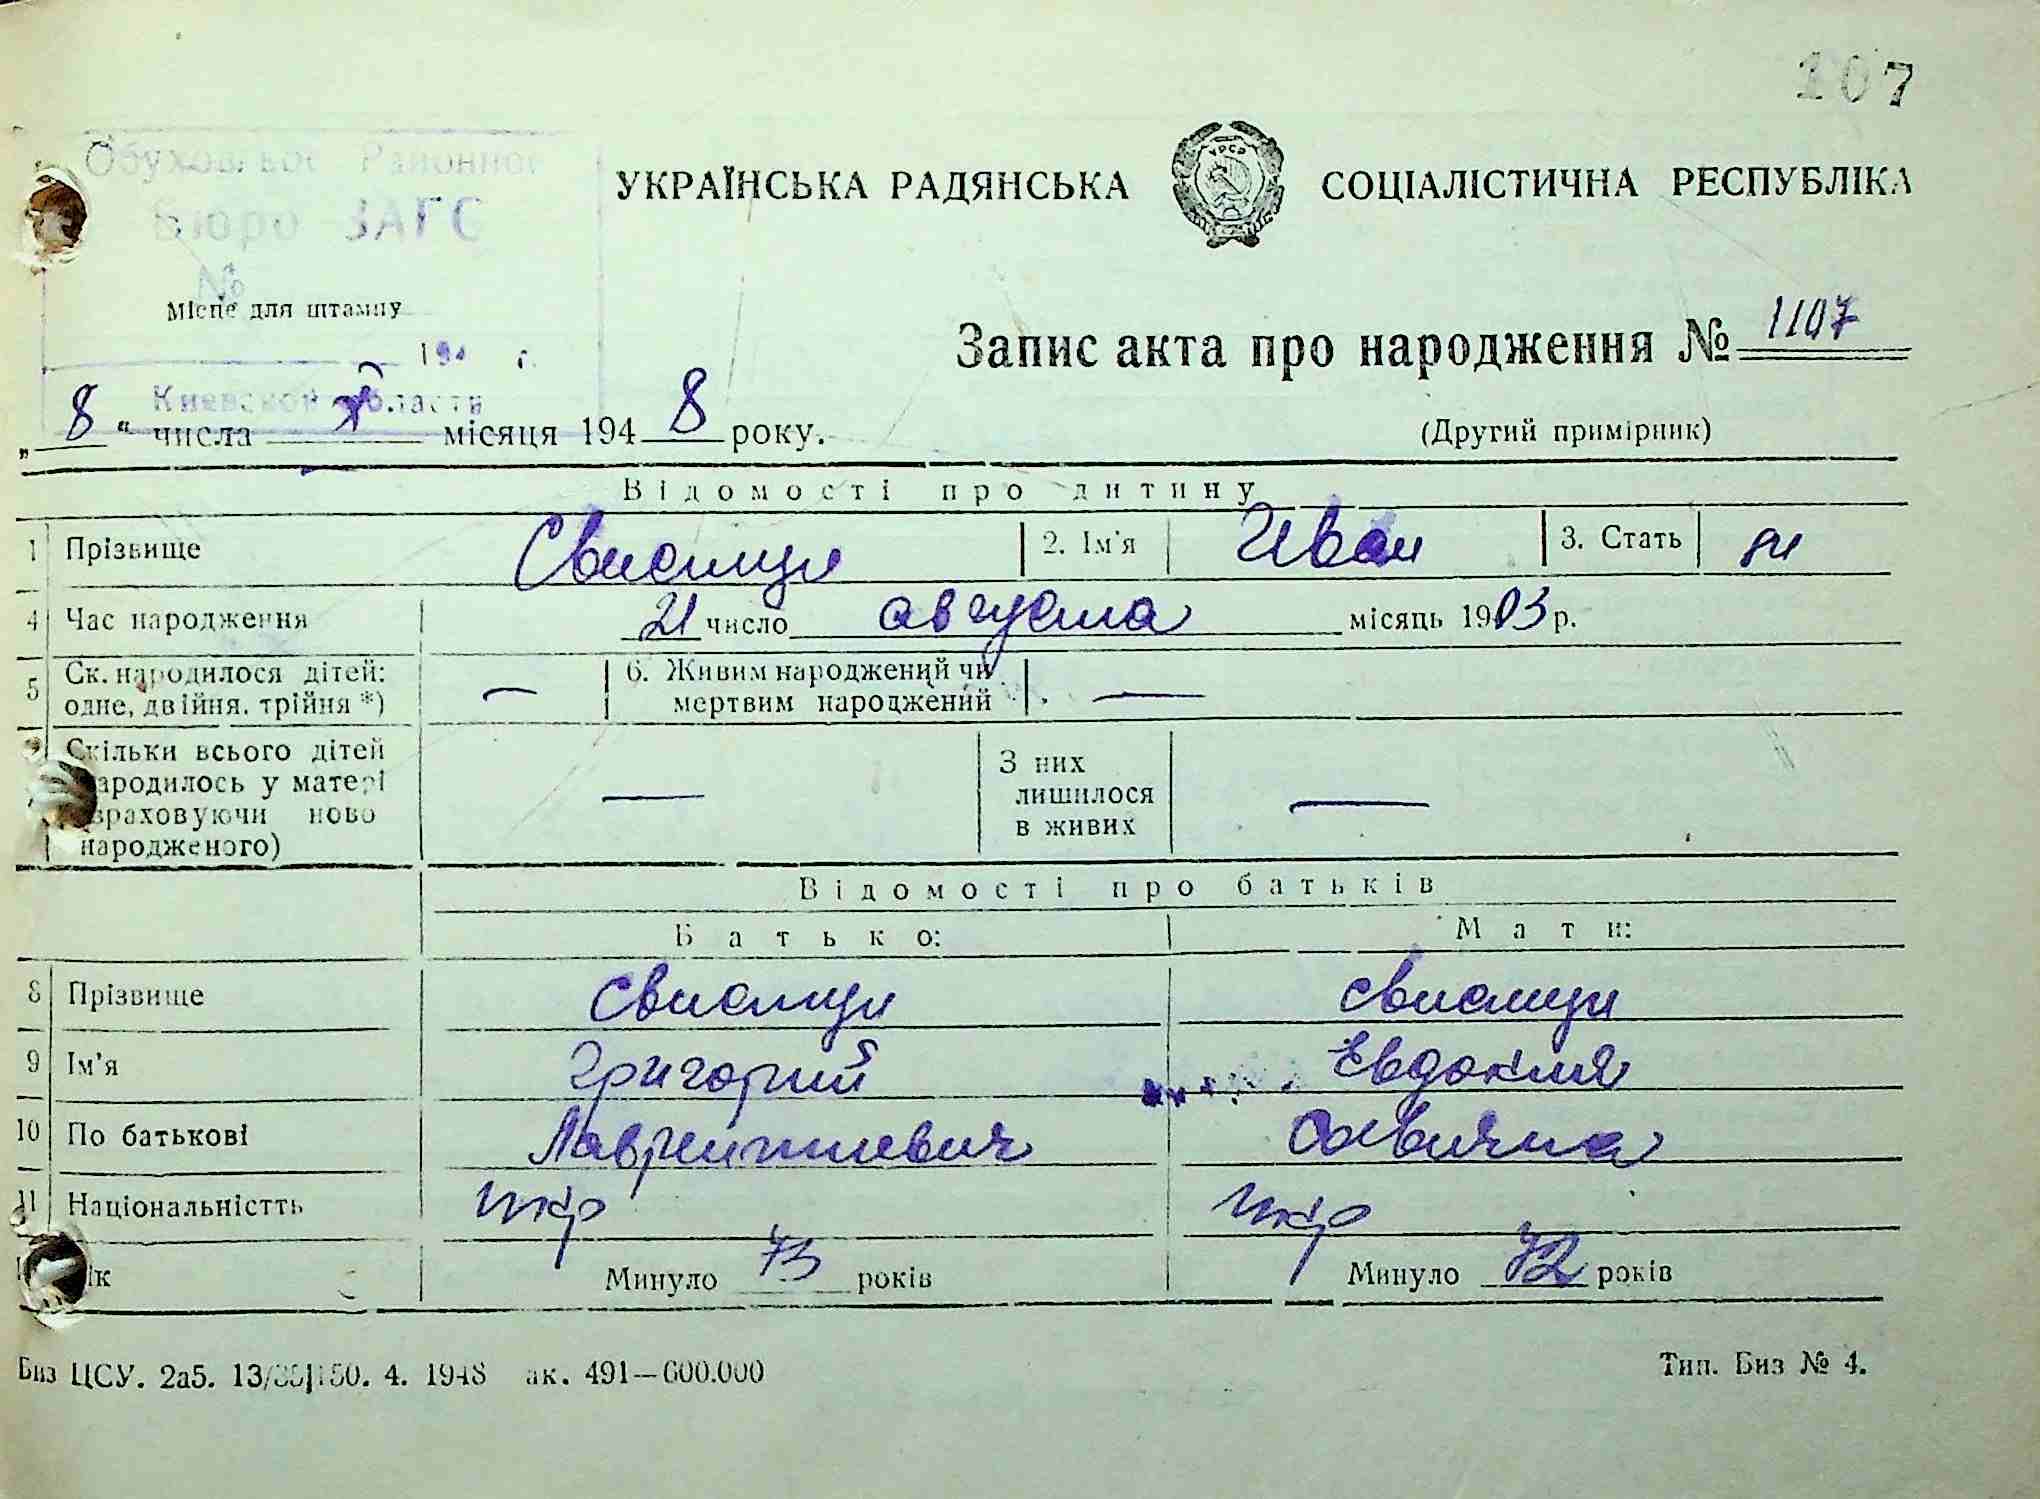 107
Обуховское Районное
Бюро ЗАГС
№
Місце для штампу
194 г.
Киевской области
УКРАЇНСЬКА РАДЯНСЬКА СОЦІАЛІСТИЧНА РЕСПУБЛІКА
УРСР
Запис акта про народження № 1107
„8“ числа X місяця 1948 року.
(Другий примірник)
Відомості про дитину
1 Прізвище 2. Ім'я Иван 3. Стать м
4 Час народження 21 число августа місяць 1903 р.
5 Ск. народилося дітей: одне, двійня, трійня *) — 6. Живим народжений чи мертвим народжений —
Скільки всього дітей народилось у матері враховуючи ново народженого) — З них лишилося в живих —
Відомості про батьків
Батько: Мати:
8 Прізвище
9 Ім'я Григорий Евдокия
10 По батькові Лаврентиевич Савична
11 Національність укр укр
Вік Минуло 73 років Минуло 72 років
Биз ЦСУ. 2а5. 4. 1948 ак. 491—600.000
Тип. Биз № 4.